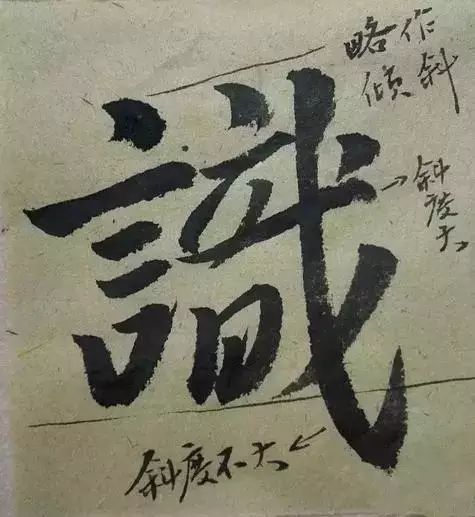 略作
倾斜
識
斜度大
斜度不大